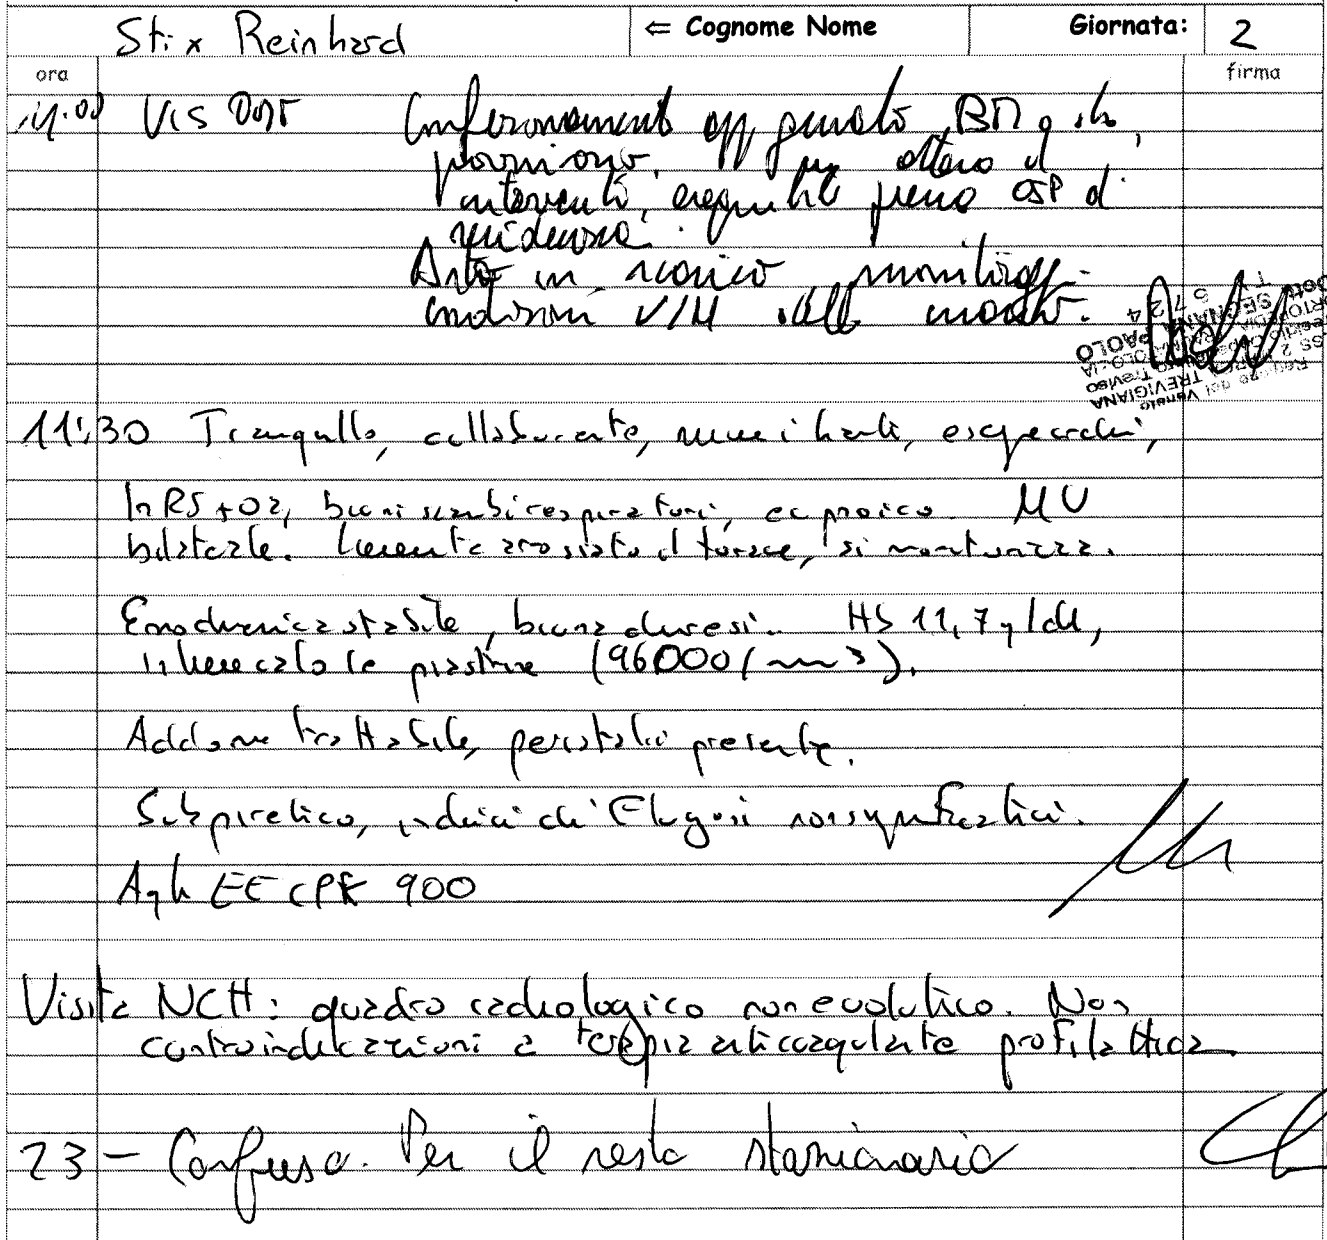 Stix Reinhard ⇐ Cognome Nome Giornata: 2
ora firma
11.00 Vis Ort Confezionamento app gessato BM g sn,
posiziono,
intervento, eseguito presso OSP di
residenza.
Arto in scarico monitoragg.
condizioni V/N
PAOLO
TREVIGIANA
11:30 Tranquillo, collaborante, muove i 4 arti, esegue ordini,
In RS + O2, buoni scambi respiratori, eupnoico. MV
bilaterale. Lievemente arrossato il torace, si monitorizza.
Emodinamica stabile, buona diuresi. Hb 11,7 g/dl,
in lieve calo le piastrine (96000/mm3).
Addome trattabile, peristalsi presente.
Subpiretico, indici di flogosi non significativi.
Agli EE CPK 900
Visita NCH: quadro radiologico non evolutivo. Non
controindicazioni a terapia anticoagulante profilattica
23 - Confuso. Per il resto stazionario